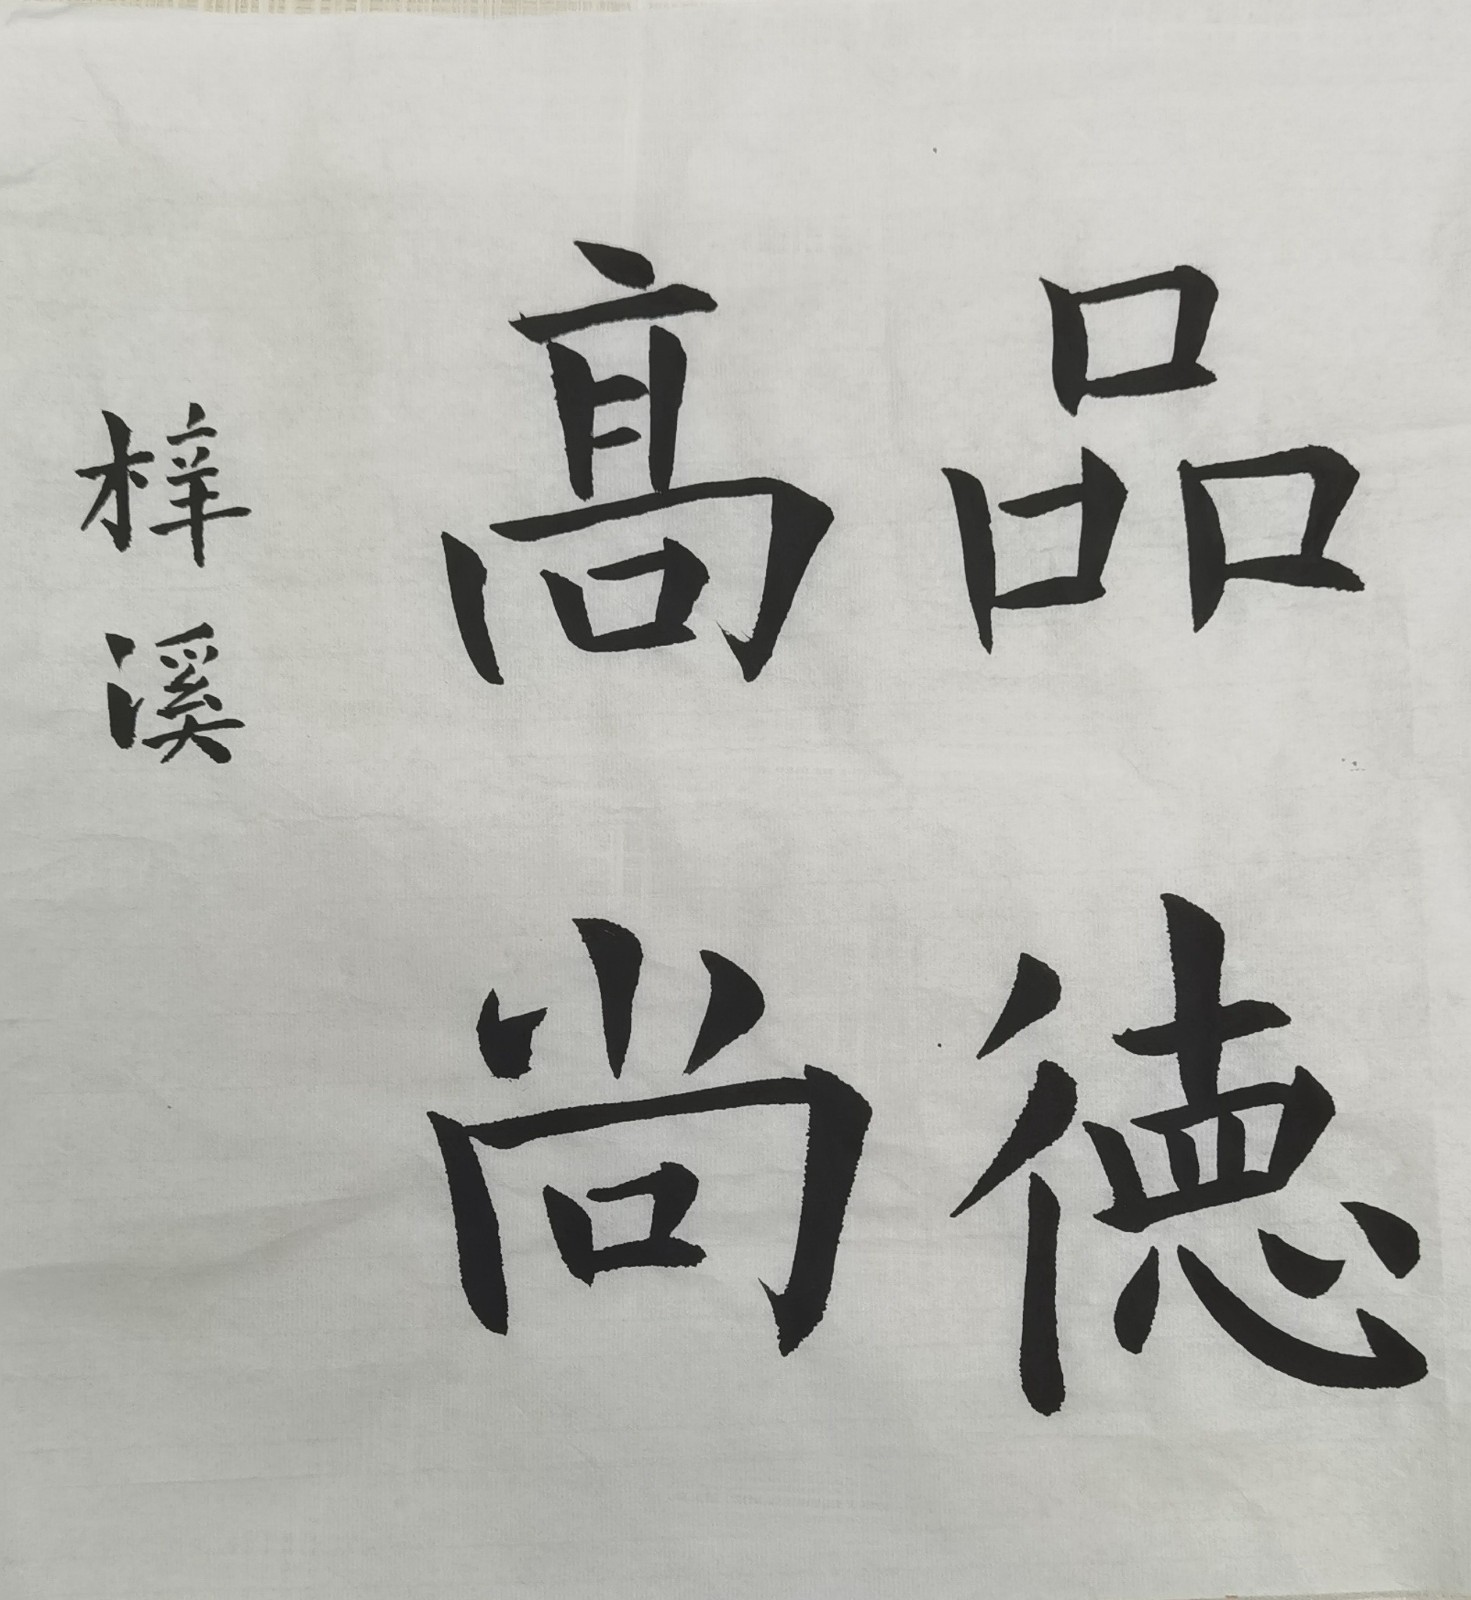 品德
髙尚
梓溪